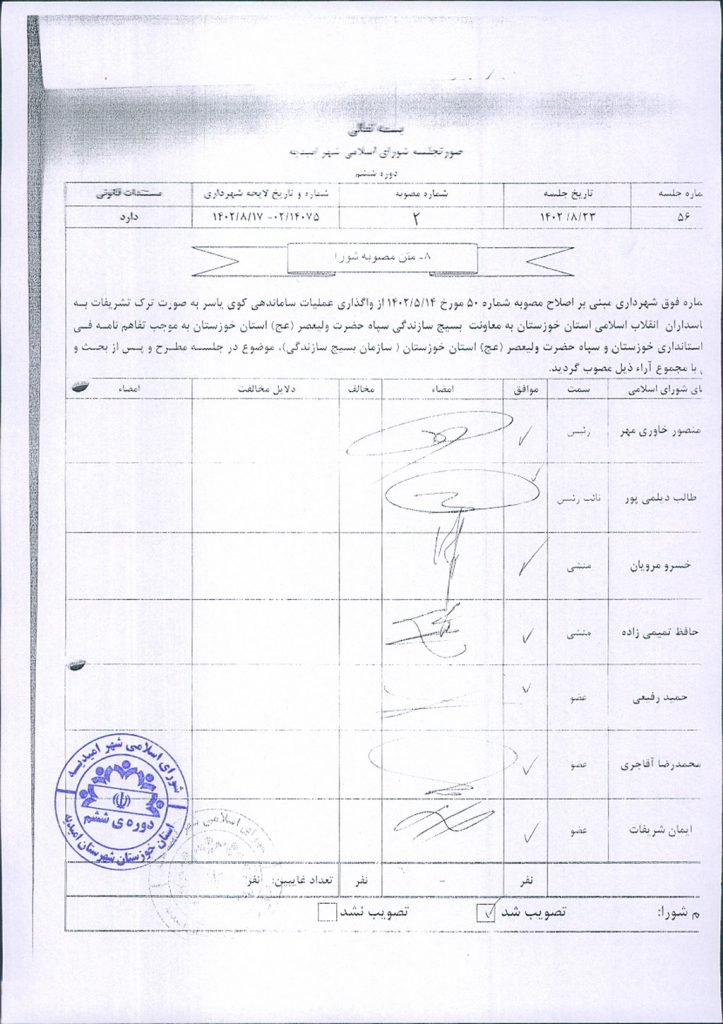 بسمه تعالی
صورتجلسه شورای اسلامی شهر امیدیه
دوره ششم
ماره جلسه تاریخ جلسه شماره مصوبه شماره و تاریخ لایحه شهرداری مستندات قانونی
۵۶ ۱۴۰۲/۸/۲۳ ۲ ۰۲/۱۴۰۷۵-۱۴۰۲/۸/۱۷ دارد
۸- متن مصوبه شورا
ماره فوق شهرداری مبنی بر اصلاح مصوبه شماره ۵۰ مورخ ۱۴۰۲/۵/۱۴ از واگذاری عملیات ساماندهی کوی یاسر به صورت ترک تشریفات به
اسداران انقلاب اسلامی استان خوزستان به معاونت بسیج سازندگی سپاه حضرت ولیعصر (عج) استان خوزستان به موجب تفاهم نامه فی
استانداری خوزستان و سپاه حضرت ولیعصر (عج) استان خوزستان ( سازمان بسیج سازندگی)، موضوع در جلسه مطرح و پس از بحث و
با مجموع آراء ذیل مصوب گردید.
ای شورای اسلامی سمت موافق امضاء مخالف دلایل مخالفت امضاء
منصور خاوری مهر رئیس
طالب دیلمی پور نائب رئیس
خسرو مرویان منشی
حافظ تمیمی زاده منشی
حمید رفیعی عضو
محمدرضا آقاجری عضو
ایمان شریفات عضو
نفر - نفر تعداد غایبین: نفر
م شورا: تصویب شد تصویب نشد
شورای اسلامی شهر امیدیه
دوره ی ششم
استان خوزستان شهرستان امیدیه